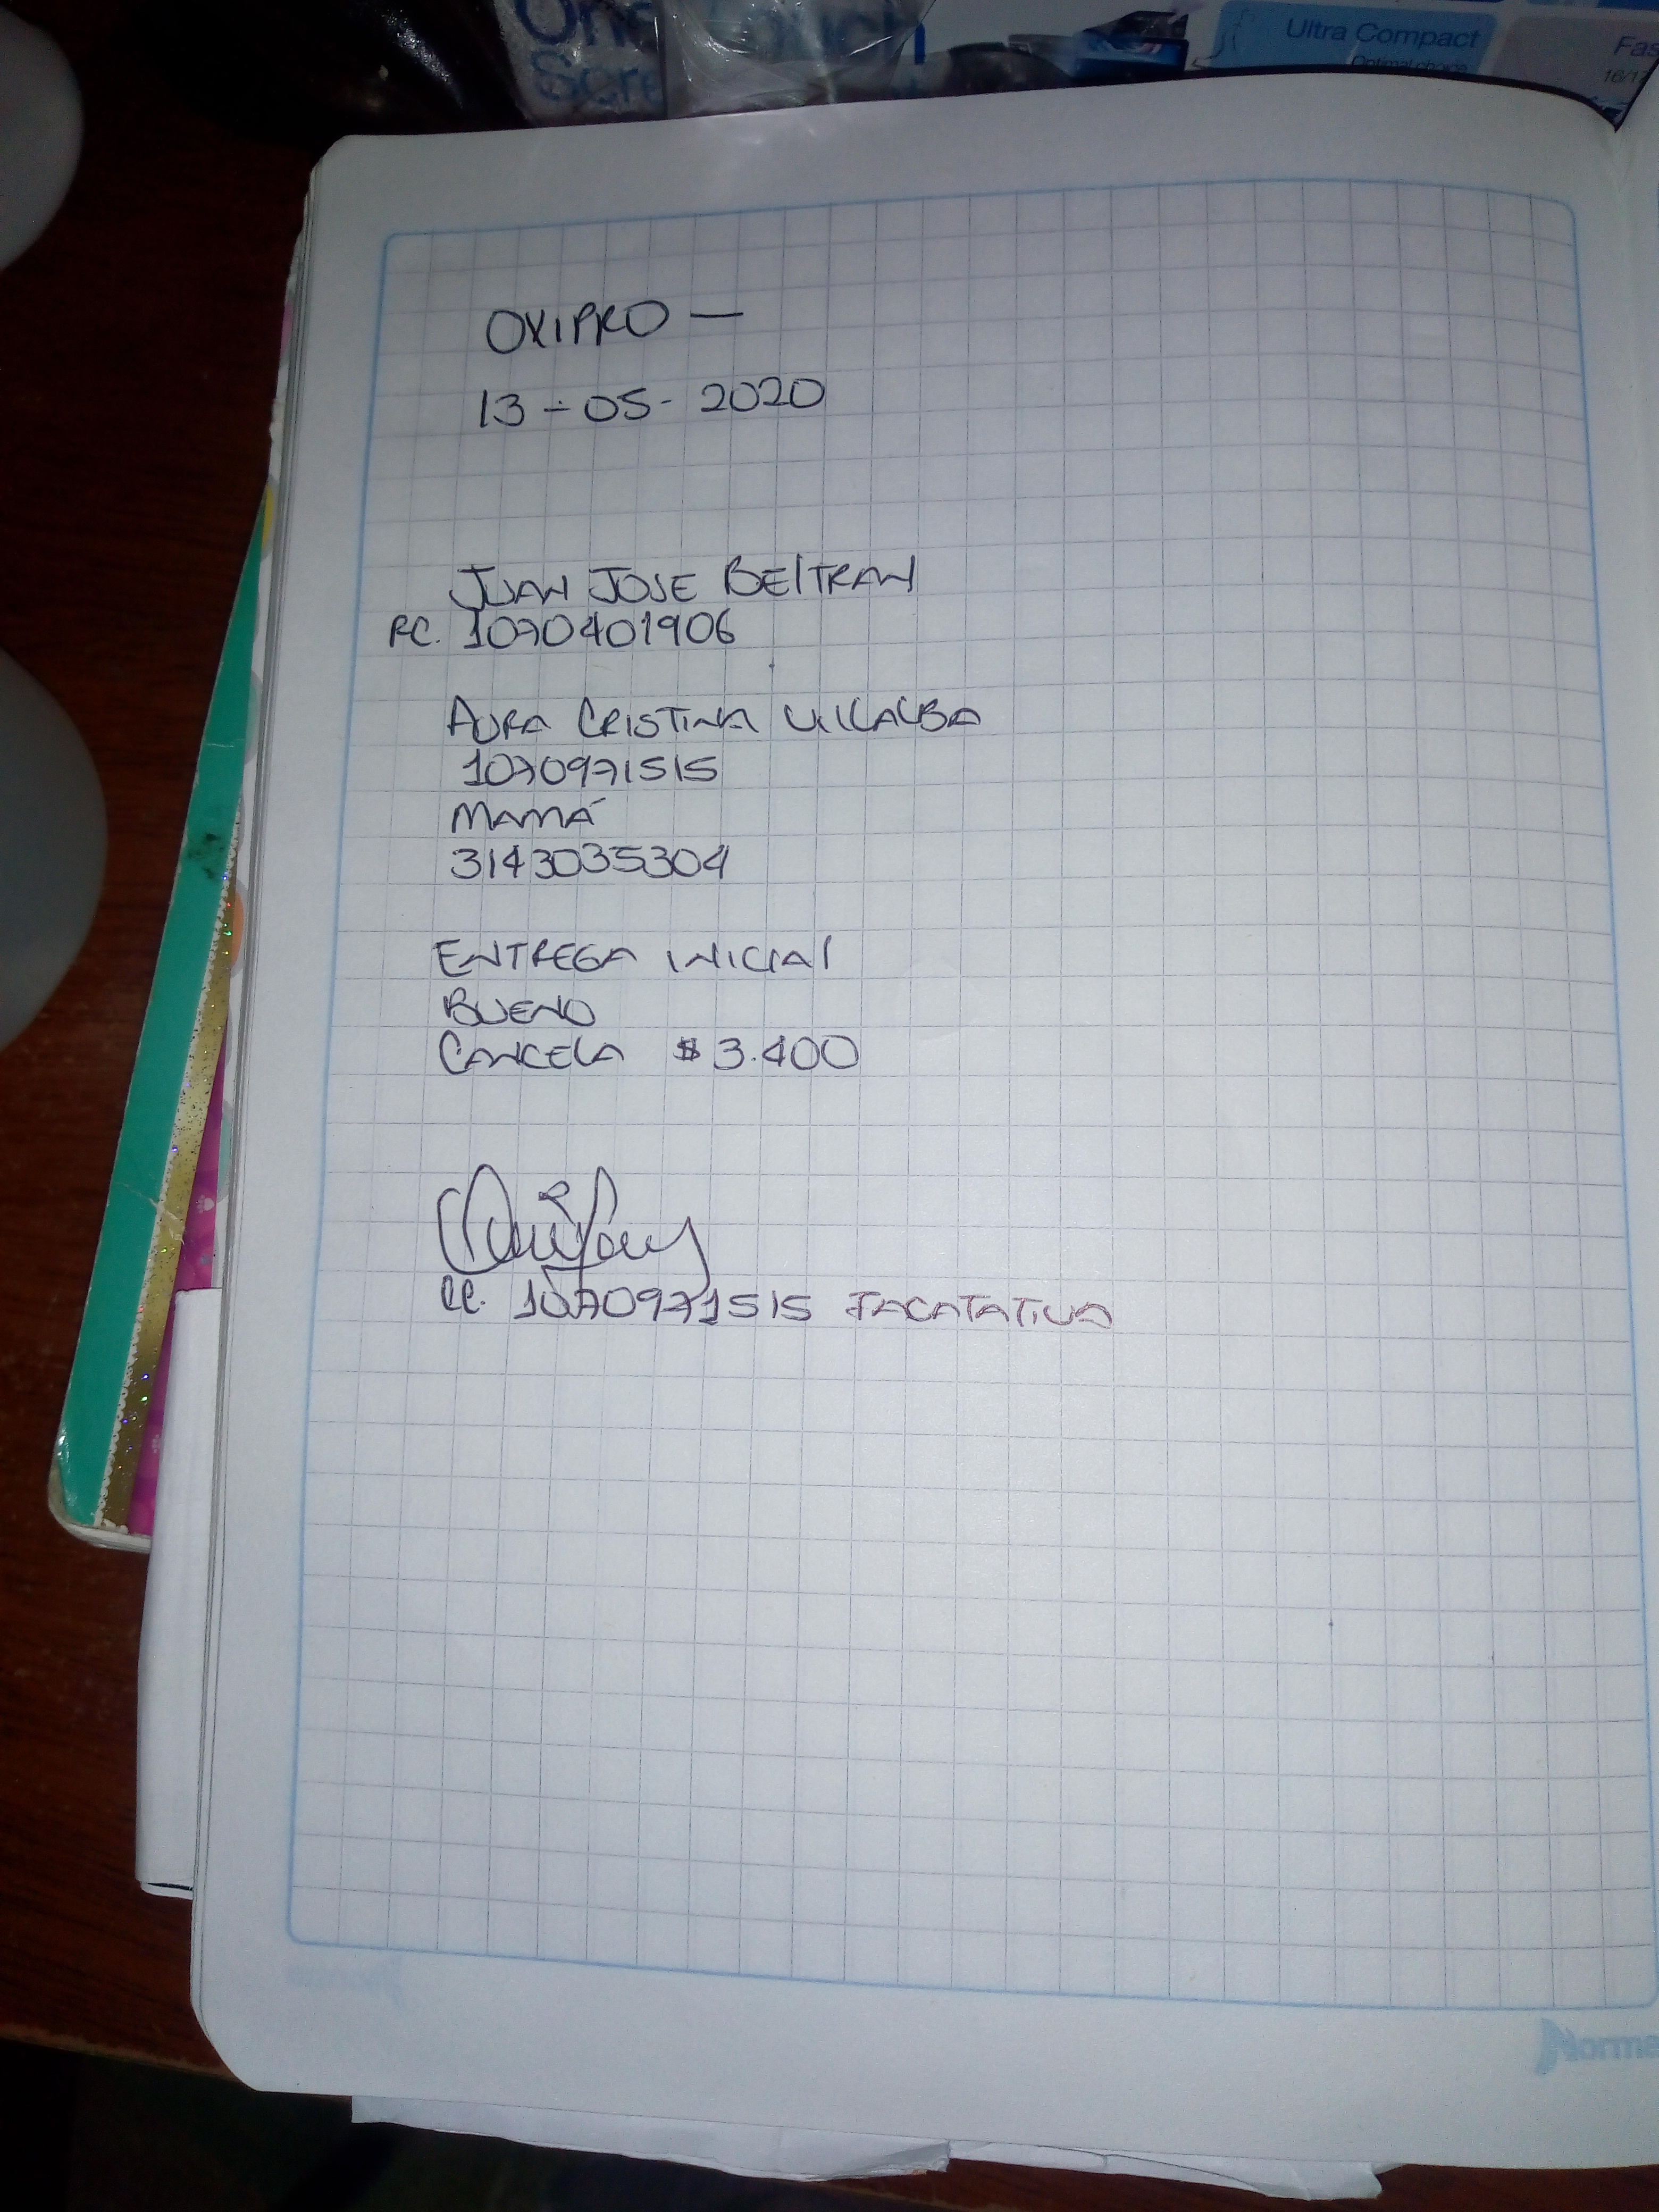 One Touch
Scre
Ultra Compact
Optimal choice
Fas
16/1
OXIPRO —
13-05-2020
JUAN JOSE BElTRAN
RC. 1070401906
AURA CRISTINA VILLALBA
1070971515
MAMÁ
3143035304
ENTREGA INICIAl
BUENO
CANCELA $ 3.400
CC. 1070971515 FACATATIVA
Norma